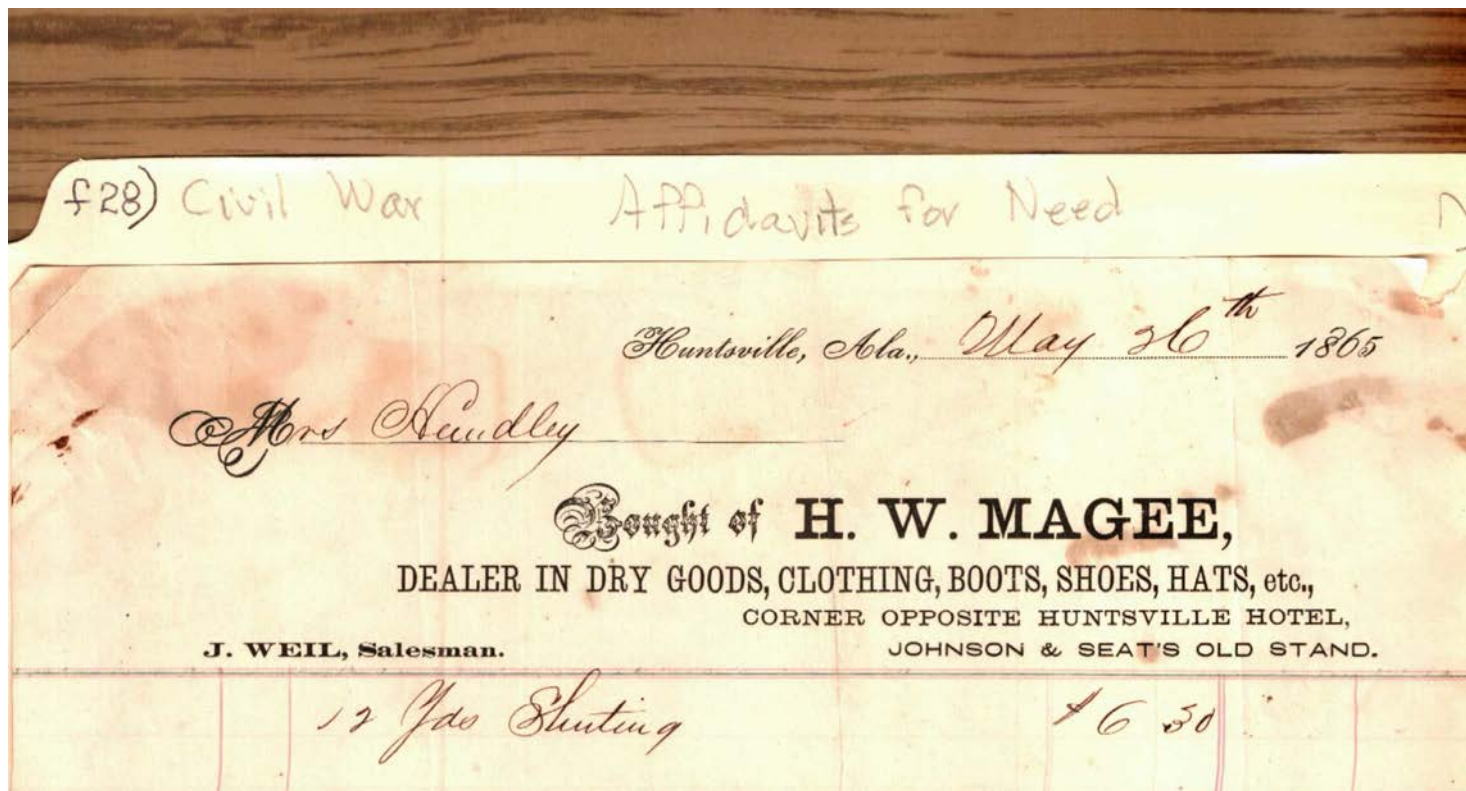 f28) Civil War Affidavits for Need
Huntsville, Ala., May 26th 1865
Mrs Hundley
Bought of H. W. MAGEE,
DEALER IN DRY GOODS, CLOTHING, BOOTS, SHOES, HATS, etc.,
CORNER OPPOSITE HUNTSVILLE HOTEL,
J. WEIL, Salesman. JOHNSON & SEAT'S OLD STAND.
12 Yds $ 6 30